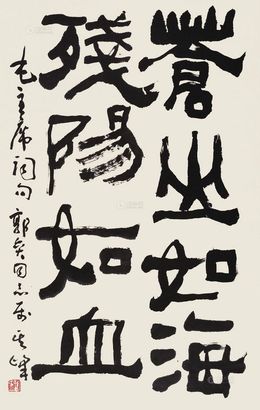 蒼山如海
殘陽如血
毛主席詞句 郭 同志屬 其峰